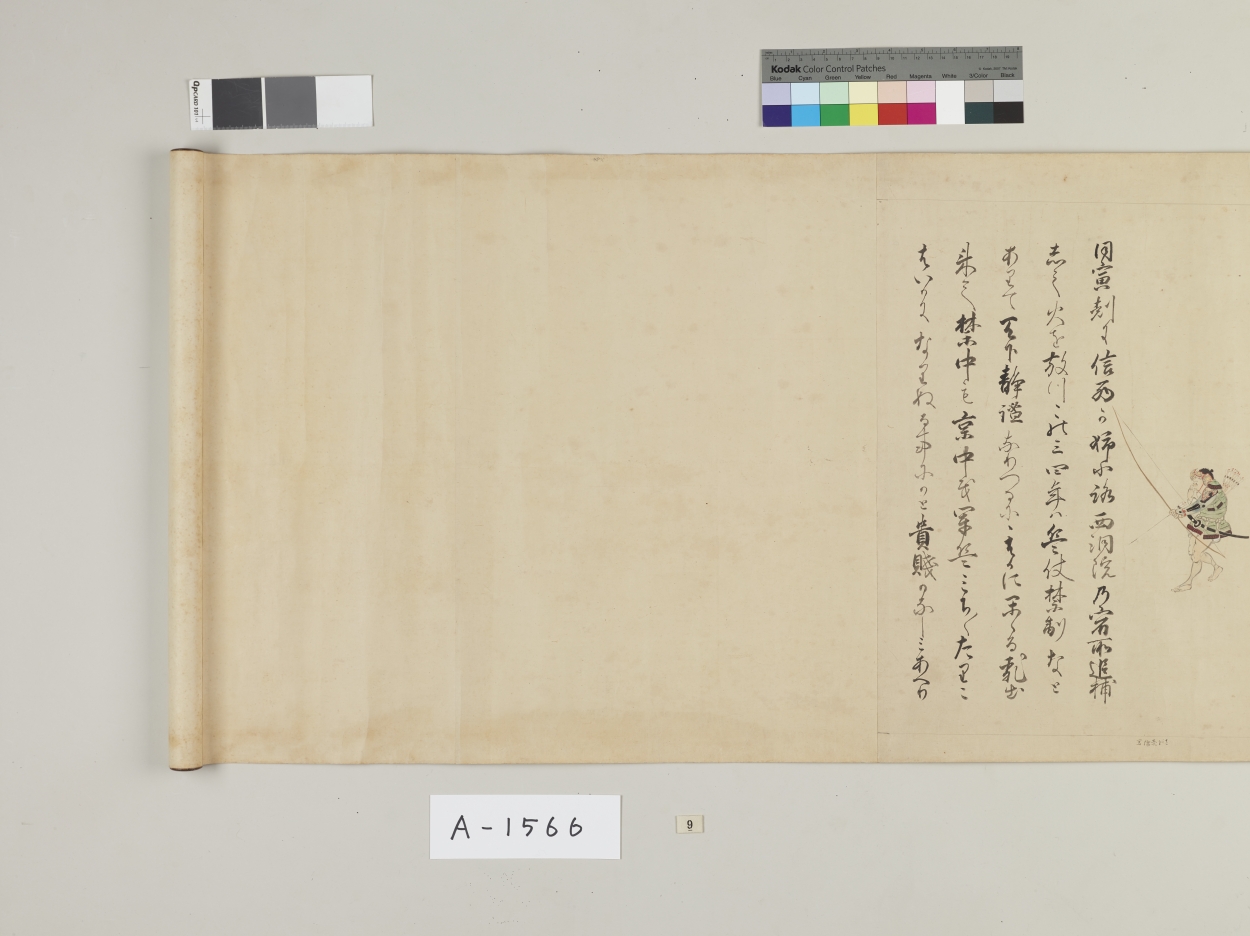 Kodak Color Control Patches
Blue Cyan Green Yellow Red Magenta White 3/Color Black
同寅刻に信西か姉小路西洞院乃宿所追捕
して火を放つこの三四年は兵仗禁制なと
ありて天下静謐なりつるに かゝる乱出
来て禁中も京中も軍兵みち〳〵たりこ
はいかになりぬる事にかと貴賤かなしみあへり
A-1566
9